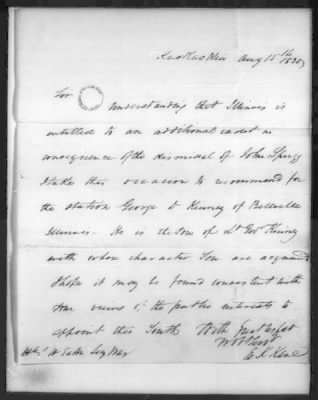 Kaskaskia Aug 15th 1830
Sir
Understanding that Illinois is
entitled to an additional cadet in
consequence of the dismissal of John Sprigg
I take this occasion to recommend for
the station George D Kinney of Belleville
Illinois. He is the son of Lt Gov Kinney
with whose character You are acquainted
I hope it may be found consistent with
Your views & the public interests to
appoint this Youth With great respect
E K Kane
Eaton Secy War